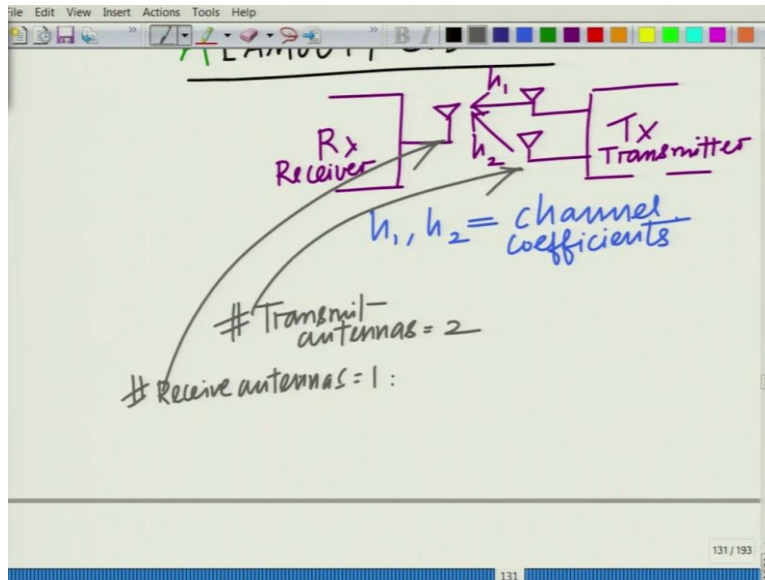 ile Edit View Insert Actions Tools Help
h₁
Rx
Receiver
h₂
Tx
Transmitter
h₁, h₂ = channel
coefficients
# Transmit
antennas = 2
# Receive antennas = 1 :
131 / 193
131